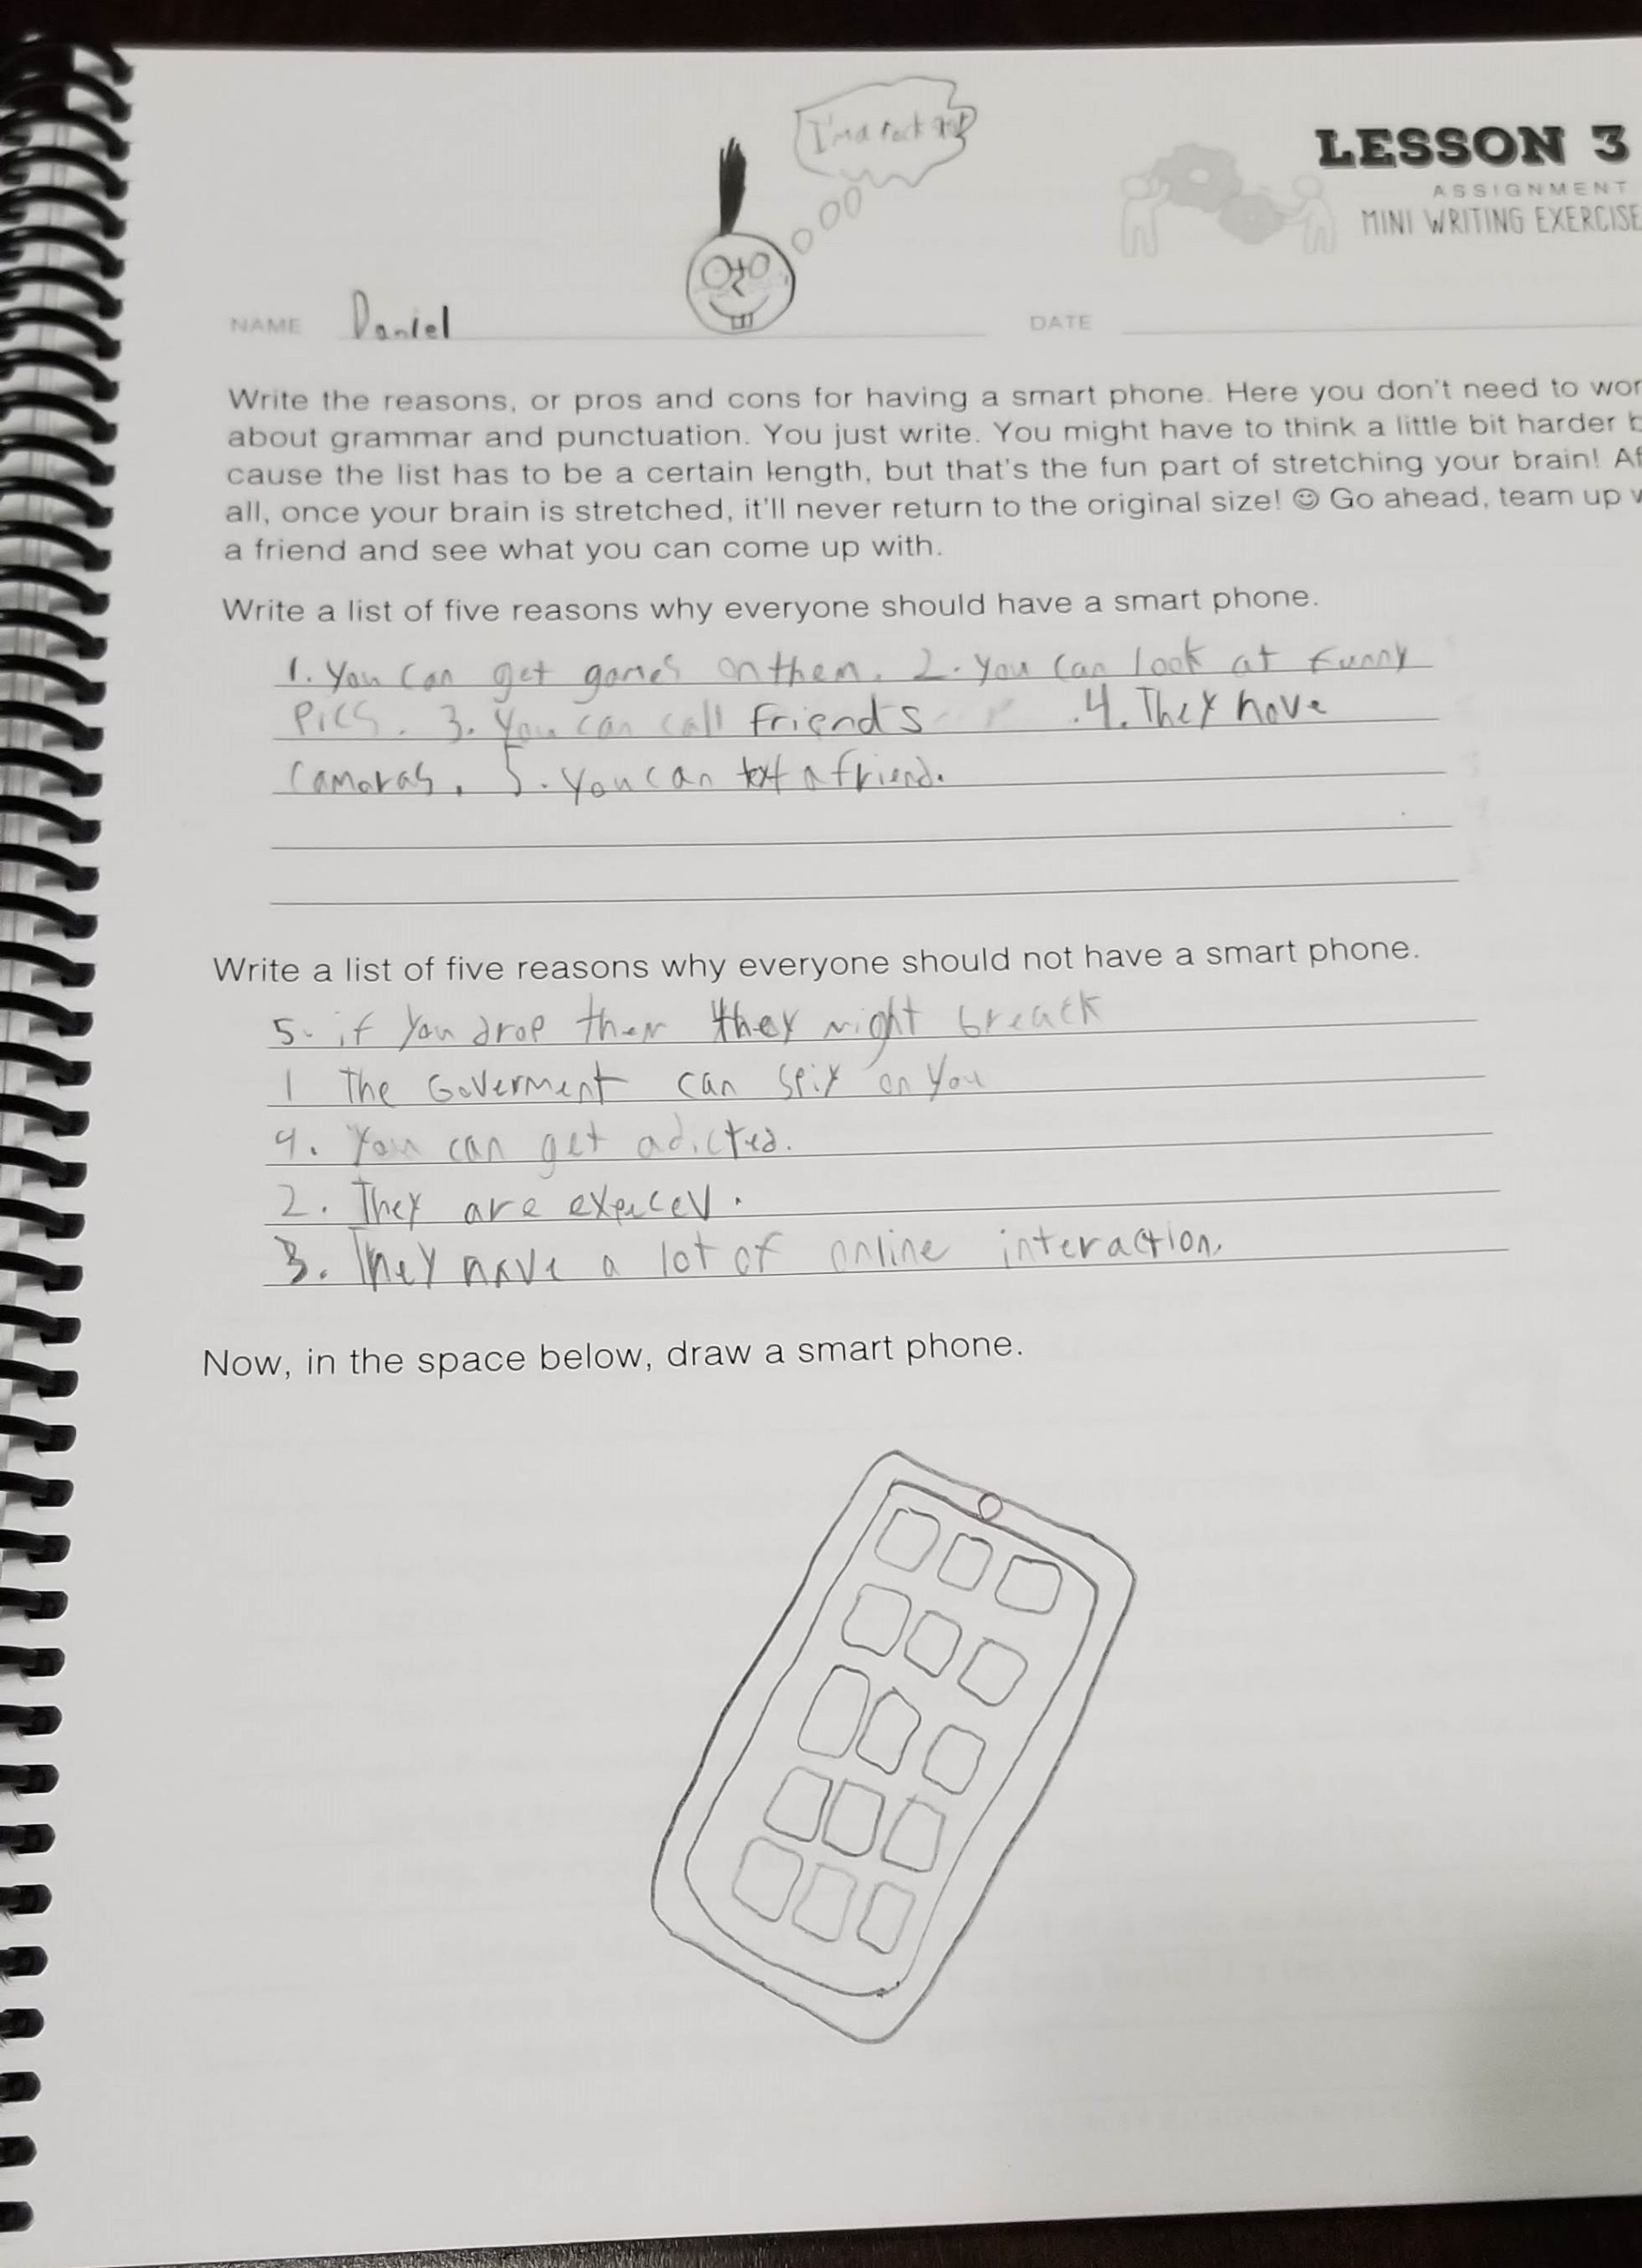 I'm a rock
LESSON 3
ASSIGNMENT
MINI WRITING EXERCISE
NAME Daniel DATE
Write the reasons, or pros and cons for having a smart phone. Here you don't need to wor
about grammar and punctuation. You just write. You might have to think a little bit harder b
cause the list has to be a certain length, but that's the fun part of stretching your brain! Af
all, once your brain is stretched, it'll never return to the original size! ☺ Go ahead, team up w
a friend and see what you can come up with.
Write a list of five reasons why everyone should have a smart phone.
1. You can get games on them. 2. you can look at funny
Pics. 3. You can call friends .4. They have
Camoras. 5. You can text a friend.
Write a list of five reasons why everyone should not have a smart phone.
5. if You drop them they might breack
1 The Goverment can spiy on You
4. You can get adicted.
2. They are expecev.
3. They have a lot of online interaction.
Now, in the space below, draw a smart phone.